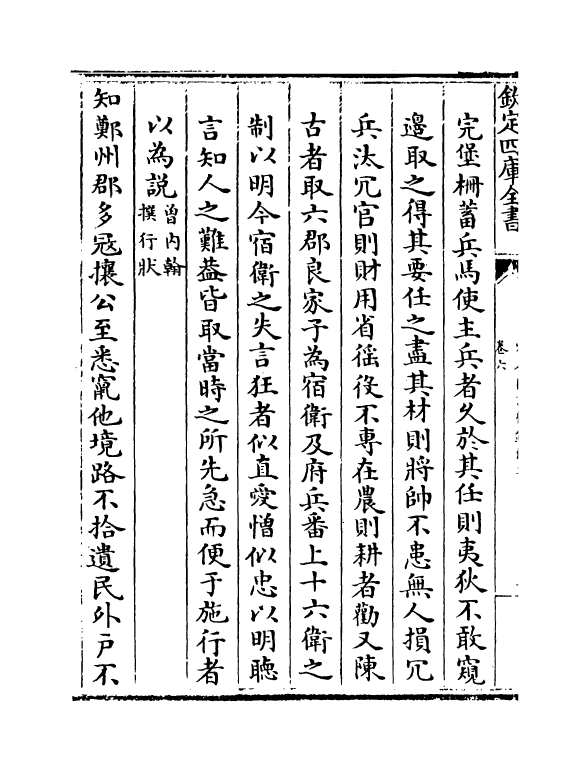 欽定四庫全書
卷六
完堡柵蓄兵馬使主兵者久於其任則夷狄不敢窺
邊取之得其要任之盡其材則將帥不患無人損冗
兵汰冗官則財用省徭役不專在農則耕者勸又陳
古者取六郡良家子為宿衛及府兵番上十六衛之
制以明今宿衛之失言狂者似直愛憎似忠以明聽
言知人之難葢皆取當時之所先急而便于施行者
以為説曾内翰撰行狀
知鄭州郡多冦攘公至悉竄他境路不拾遺民外户不